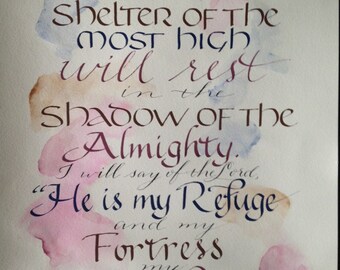 Shelter of the
most high
will rest
in the
Shadow of the
Almighty.
I will say of the Lord,
"He is my Refuge
and my
Fortress
my